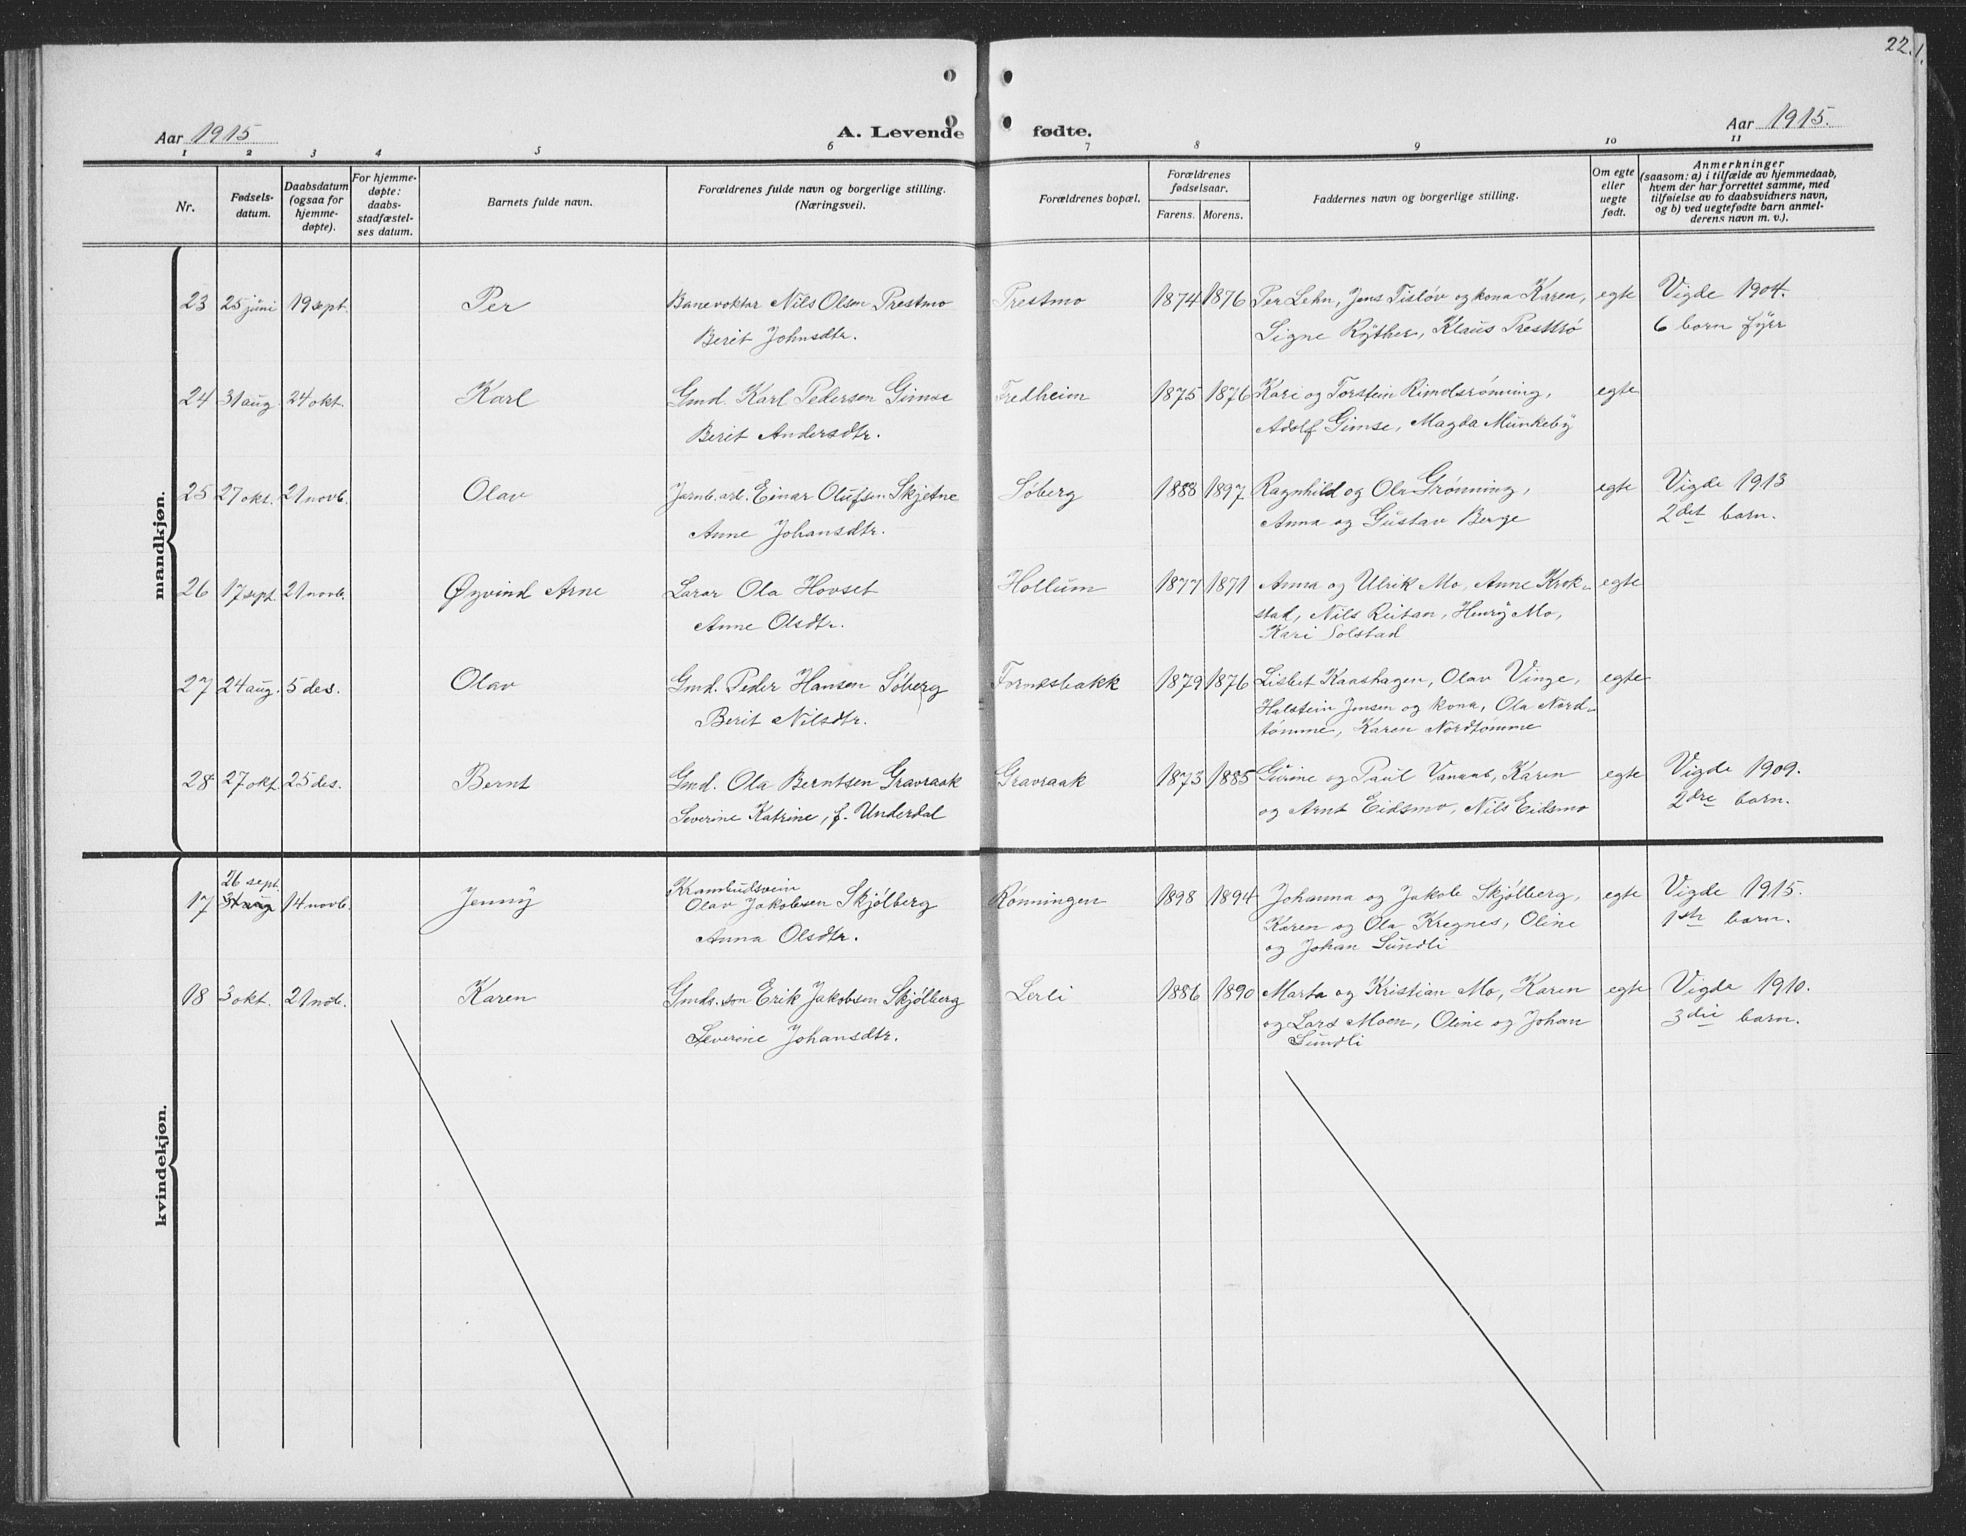 22.
Aar 1915
A. Levende fødte.
Aar 1915.
1 2 3 4 5 6 7 8 9 10 11
Nr.
Fødsels-
datum.
Daabsdatum
(ogsaa for
hjemme-
døpte).
For hjemme-
døpte:
daabs-
stadfæstel-
ses datum.
Barnets fulde navn.
Forældrenes fulde navn og borgerlige stilling.
(Næringsvei).
Forældrenes bopæl.
Forældrenes
fødselsaar.
Farens. Morens.
Faddernes navn og borgerlige stilling.
Om egte
eller
uegte
født.
Anmerkninger
(saasom: a) i tilfælde av hjemmedaab,
hvem der har forrettet samme, med
tilføielse av to daabsvidners navn,
og b) ved uegtefødte barn anmel-
derens navn m. v.).
mandkjøn.
23 25 juni 19 sept. Per Banevoktar Nils Olsen Prestmo Prestmo 1874 1876 Per Lehn, Jens Tisløv og kona Karen, egte Vigde 1904.
Berit Johnsdtr. Signe Ryther, Klaus Presttrø 6 barn fyrr
24 31 aug. 24 okt. Karl Gmd. Karl Pedersen Gimse Fredheim 1875 1876 Kari og Torstein Rimolsrønning, egte
Berit Andersdtr. Adolf Gimse, Magda Munkeby
25 27 okt. 21 novb. Olav Jarnb.arb. Einar Olufsen Skjetne Søberg 1888 1897 Ragnhild og Ola Grønning, egte Vigde 1913
Anne Johansdtr. Anna og Gustav Berge 2det barn.
26 17 sept. 21 novb. Øyvind Arne Lærar Ola Hovset Hollum 1877 1871 Anna og Ulrik Mo, Anne Krok- egte
Anne Olsdtr. stad, Nils Reitan, Henry Mo,
Kari Solstad
27 24 aug. 5 des. Olav Gmd. Peder Hansen Søberg Fornesbakk 1879 1876 Lisbet Kaashagen, Olav Vinge, egte
Berit Nilsdtr. Halstein Jensen og kona, Ola Nord-
tømme, Karen Nordtømme
28 27 okt. 25 des. Bernt Gmd. Ola Berntsen Gravraak Gravraak 1873 1885 Gurine og Paul Vanaab, Karen egte Vigde 1909.
Severine Katrine, f. Underdal og Arnt Eidsmo, Nils Eidsmo 2dre barn.
kvindekjøn.
26 sept. Krambudsvein
17 31 aug 14 novb. Jenny Olav Jakobsen Skjølberg Rønningen 1898 1894 Johanna og Jakob Skjølberg, egte Vigde 1915.
Anna Olsdtr. Karen og Ola Kregnes, Oline 1ste barn.
og Johan Sundli
18 3 okt. 21 nob. Karen Gmds. son Erik Jakobsen Skjølberg Lerli 1886 1890 Marta og Kristian Mo, Karen egte Vigde 1910.
Severine Johansdtr. og Lars Moen, Oline og Johan 3die barn.
Sundli